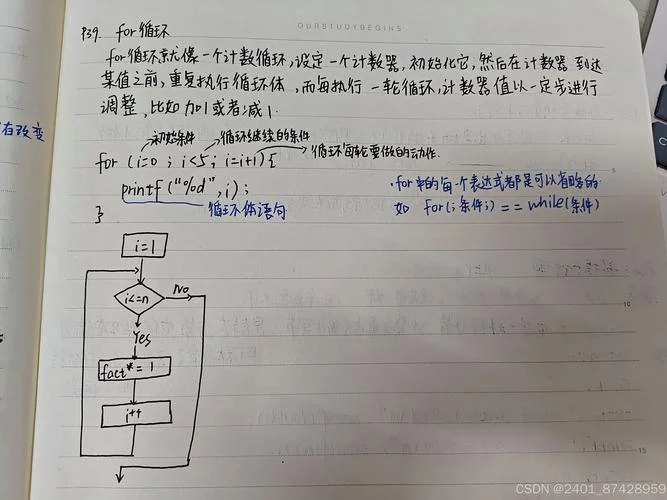 OURSTUDYBEGINS
P39. for循环
for循环就像一个计数循环,设定一个计数器,初始化它,然后在计数器到达
某值之前,重复执行循环体,而每执行一轮循环,计数器值以一定步进行
调整,比如加1或者减1.
初始条件 循环继续的条件
循环每轮要做的动作.
for (i=0 ; i<5; i=i+1) {
printf ("%d", i);
循环体语句
}
·for中的每一个表达式都是可以省略的
如 for(;条件;) == while(条件)
有改变
i=1
i<=n
No
Yes
fact*= 1
i++
5
10
15
CSDN @2401_87428959